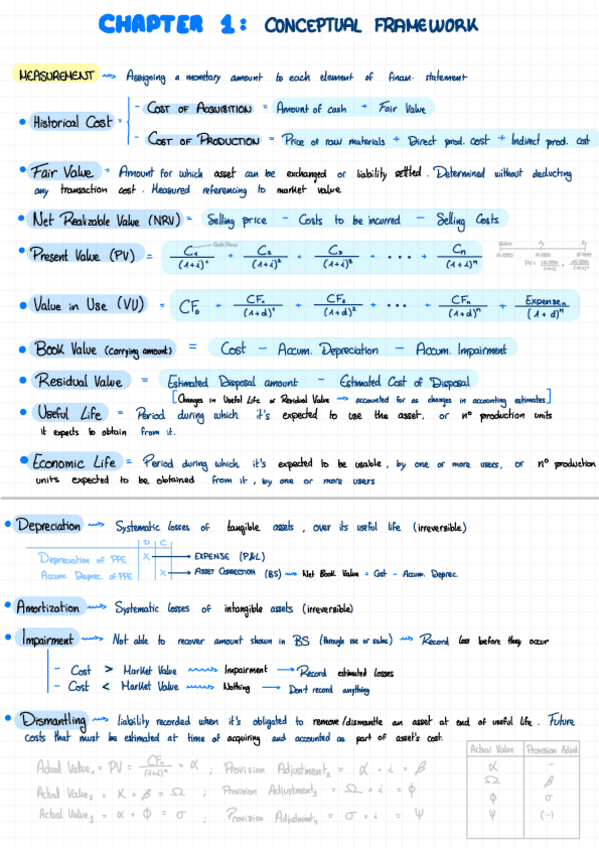 CHAPTER 1: CONCEPTUAL FRAMEWORK
MEASUREMENT → Assigning a monetary amount to each element of finan. statement
• Historical Cost =
- COST OF ACQUISITION = Amount of cash + Fair Value
- COST OF PRODUCTION = Price of raw materials + Direct prod. cost + Indirect prod. cost
• Fair Value = Amount for which asset can be exchanged or liability settled. Determined without deducting
any transaction cost. Measured referencing to market value
• Net Realizable Value (NRV) = Selling price - Costs to be incurred - Selling Costs
• Present Value (PV) = C₁/(1+i)¹ + C₂/(1+i)² + C₃/(1+i)³ + ... + Cn/(1+i)ⁿ
Cash Flow
• Value in Use (VU) = CF₀ + CF₁/(1+d)¹ + CF₂/(1+d)² + ... + CFn/(1+d)ⁿ + Expensen/(1+d)ⁿ
• Book Value (carrying amount) = Cost - Accum. Depreciation - Accum. Impairment
• Residual Value = Estimated Disposal amount - Estimated Cost of Disposal
[Changes in Useful Life or Residual Value → accounted for as changes in accounting estimates]
• Useful Life = Period during which it's expected to use the asset, or nº production units
it expects to obtain from it.
• Economic Life = Period during which it's expected to be usable, by one or more users, or nº production
units expected to be obtained from it, by one or more users
• Depreciation → Systematic losses of tangible assets, over its useful life (irreversible)
D C
Depreciation of PPE X → EXPENSE (P&L)
Accum. Deprec. of PPE X → ASSET CORRECTION (BS) → Net Book Value = Cost - Accum. Deprec.
• Amortization → Systematic losses of intangible assets (irreversible)
• Impairment → Not able to recover amount shown in BS (through use or sales) → Record loss before they occur
- Cost > Market Value → Impairment → Record estimated losses
- Cost < Market Value → Nothing → Don't record anything
• Dismantling → liability recorded when it's obligated to remove/dismantle an asset at end of useful life. Future
costs that must be estimated at time of acquiring and accounted as part of asset's cost.
Actual Value = PV = CFn/(1+i)ⁿ = α ; Provision Adjustment₂ = α × i = β
Actual Value₃ = α + β = Ω ; Provision Adjustment₃ = Ω × i = ϕ
Actual Value₃ = α + ϕ = σ ; Provision Adjustment₄ = σ × i = ψ
Actual Value Provision Adust
α -
Ω β
ϕ σ
ψ (-)